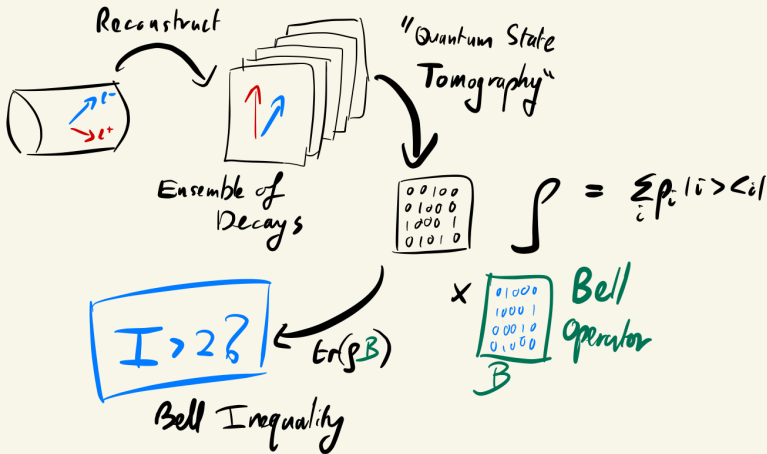 Reconstruct
"Quantum State
Tomography"
e-
e+
Ensemble of
Decays
0 0 1 0 0
0 1 0 0 0
1 0 0 0 1
0 1 0 1 0
ρ = Σ_i p_i |i><i|
×
0 1 0 0 0
1 0 0 0 1
0 0 0 1 0
0 1 0 0 0
B
Bell
Operator
tr(ρB)
I > 2?
Bell Inequality